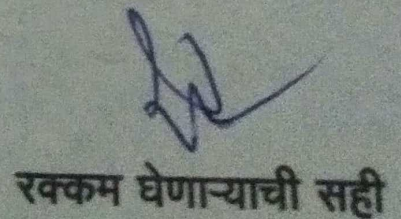 रक्कम घेणाऱ्याची सही